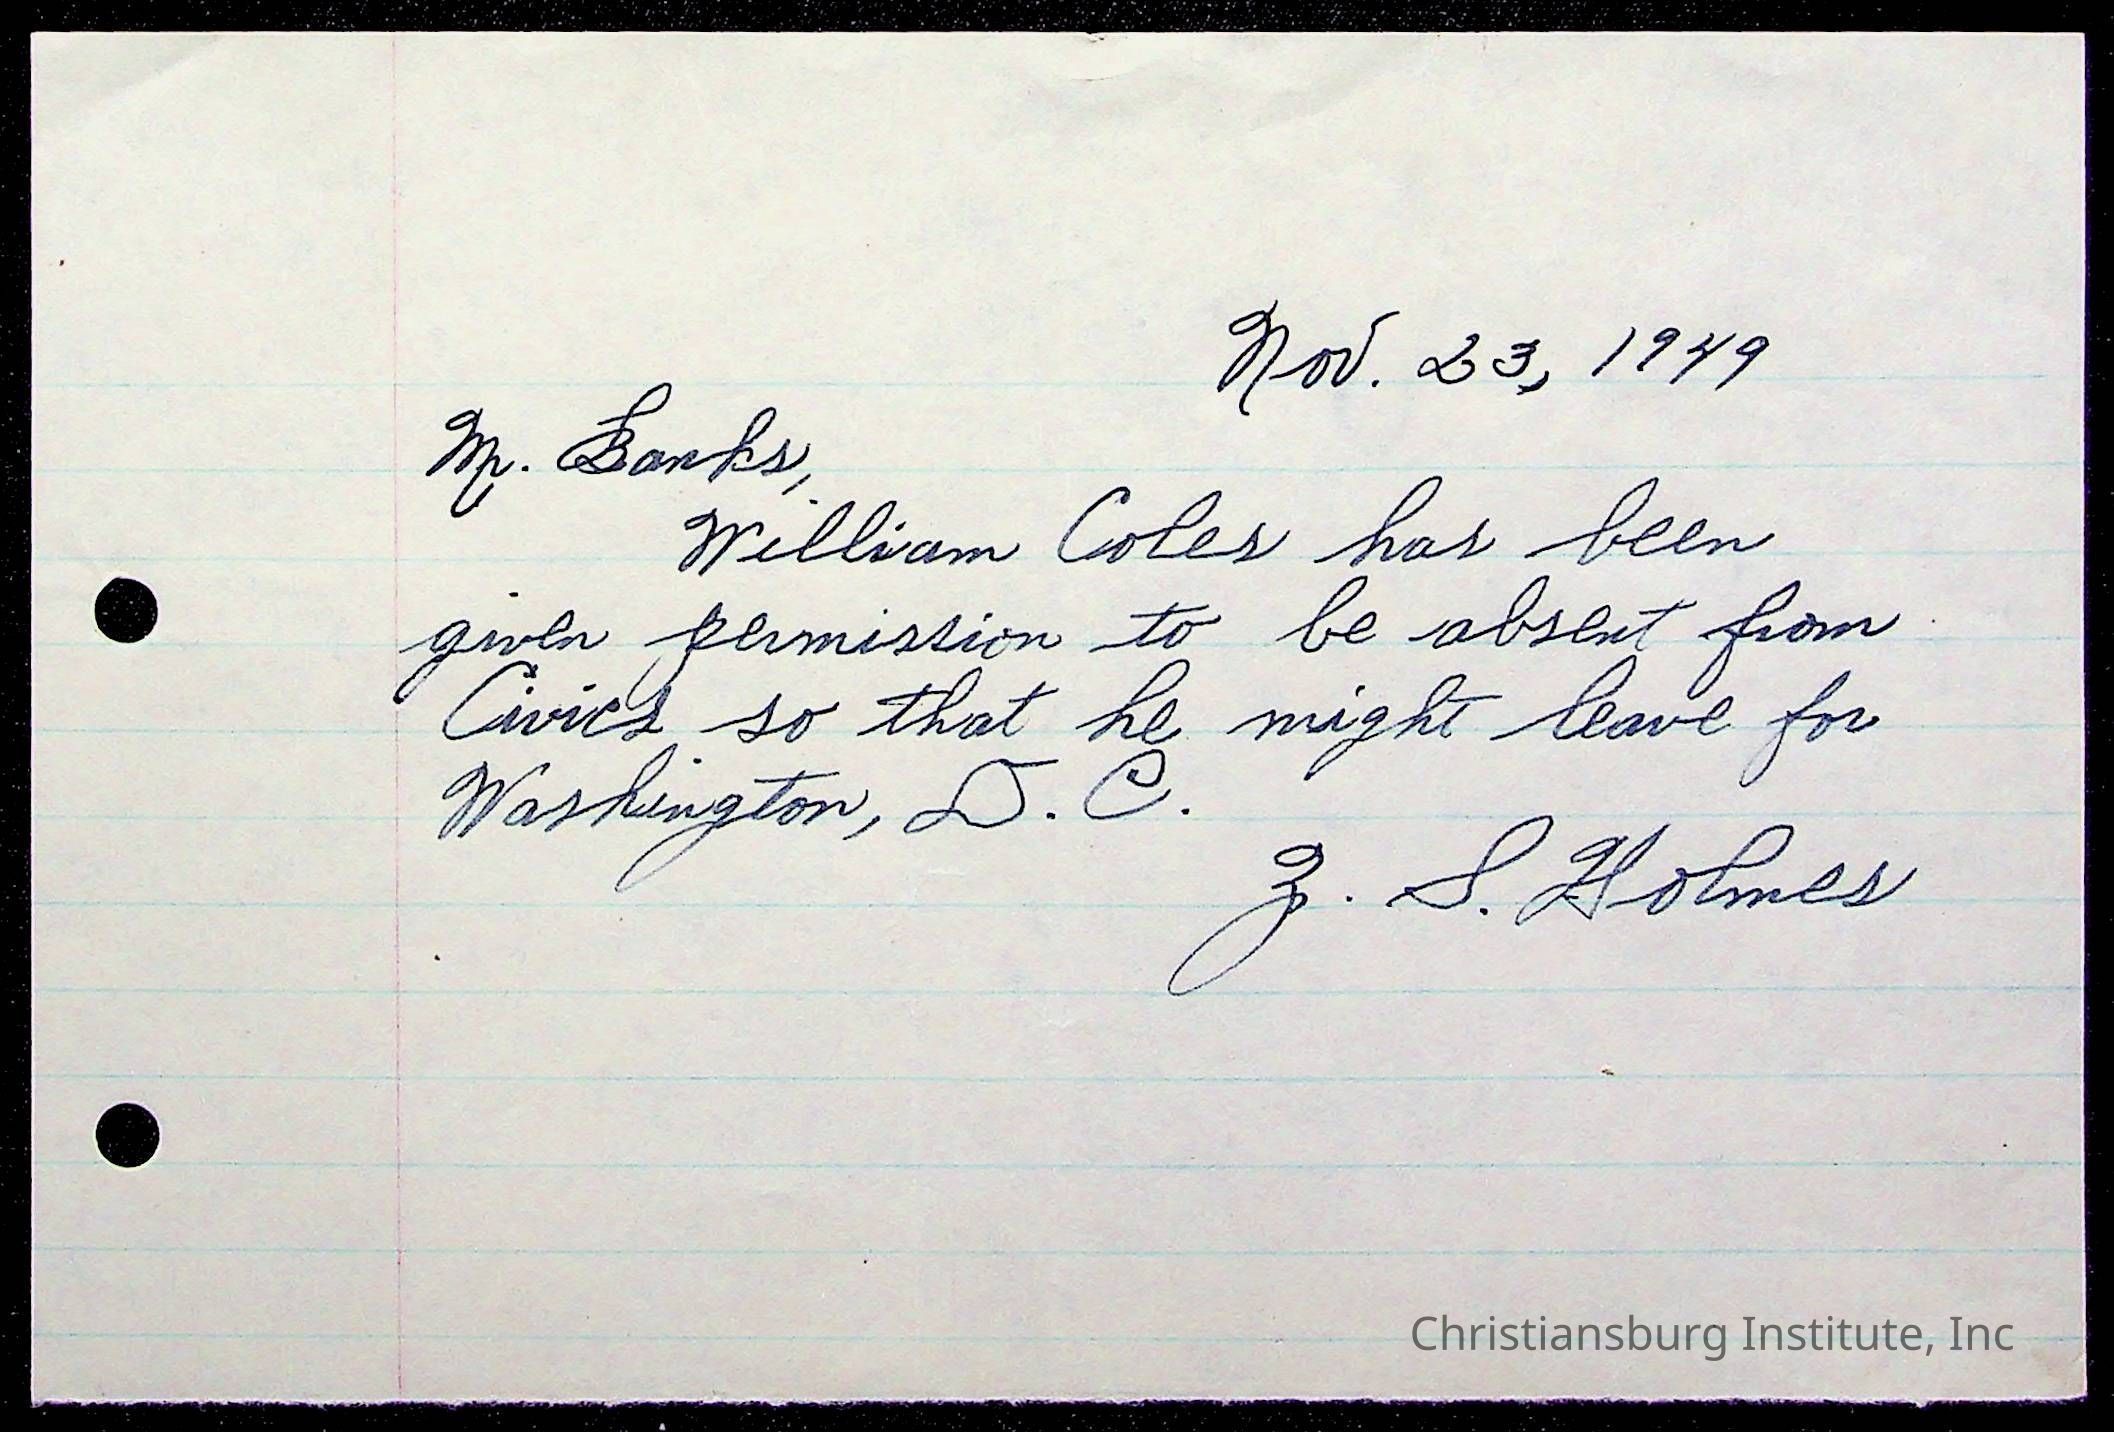 Nov. 23, 1949
Mr. Banks,
William Coles has been
given permission to be absent from
Civics so that he might leave for
Washington, D. C.
Z. S. Holmes
Christiansburg Institute, Inc